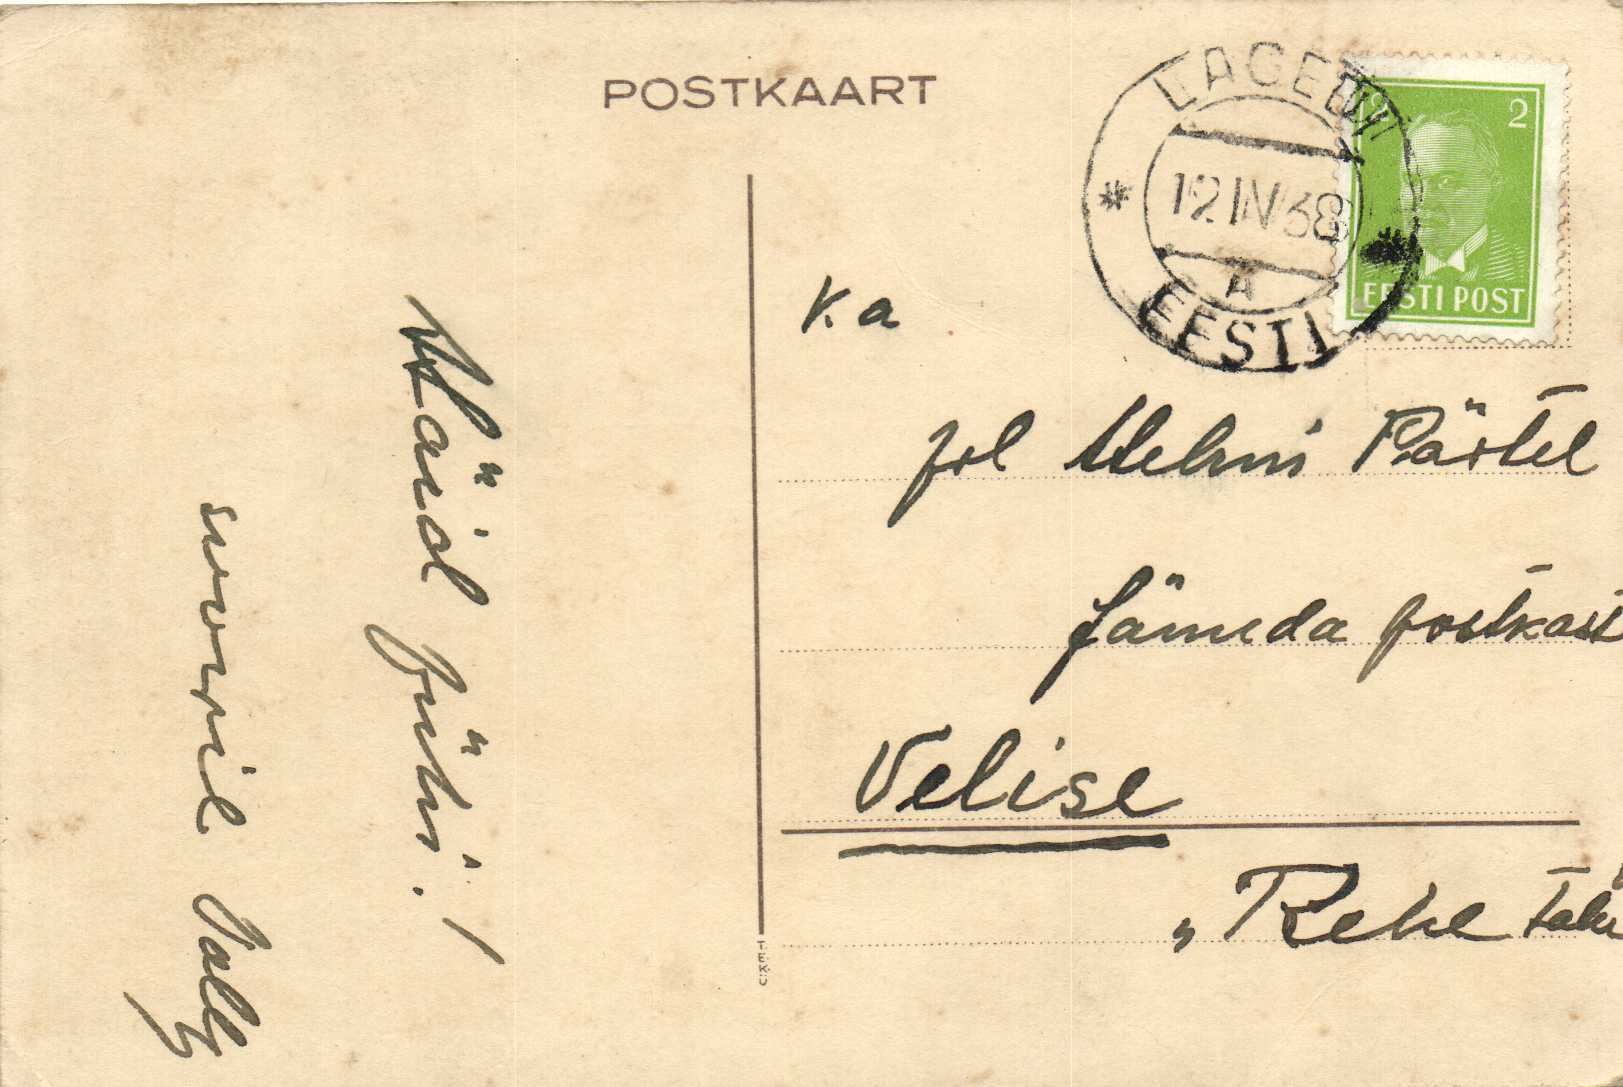 POSTKAART
LAGEDI
12 IV 38
A
EESTI
2 2
EESTI POST
K. a
prl Helmi Pärtel
Jämeda postkast
Velise
"Rehe talu
Häid pühi!
soovil Vally